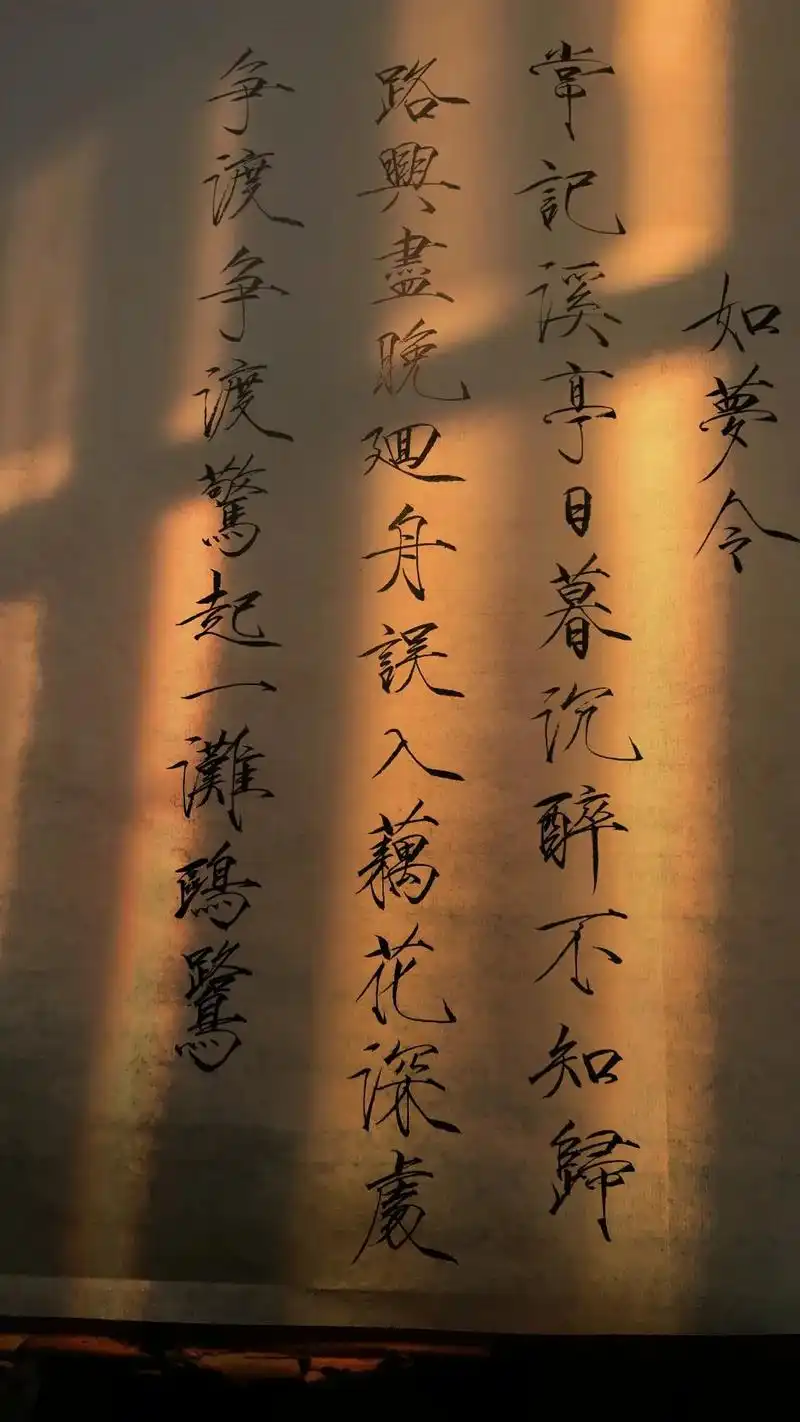 如夢令
常記溪亭日暮沉醉不知歸
路興盡晚迴舟誤入藕花深處
争渡争渡驚起一灘鷗鷺